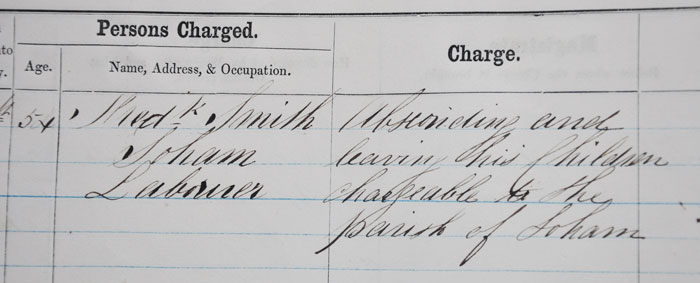 Persons Charged.
Charge.
Age.
Name, Address, & Occupation.
54
Fredk Smith
Soham
Labourer
Absconding and
leaving his Children
chargeable to the
parish of Soham